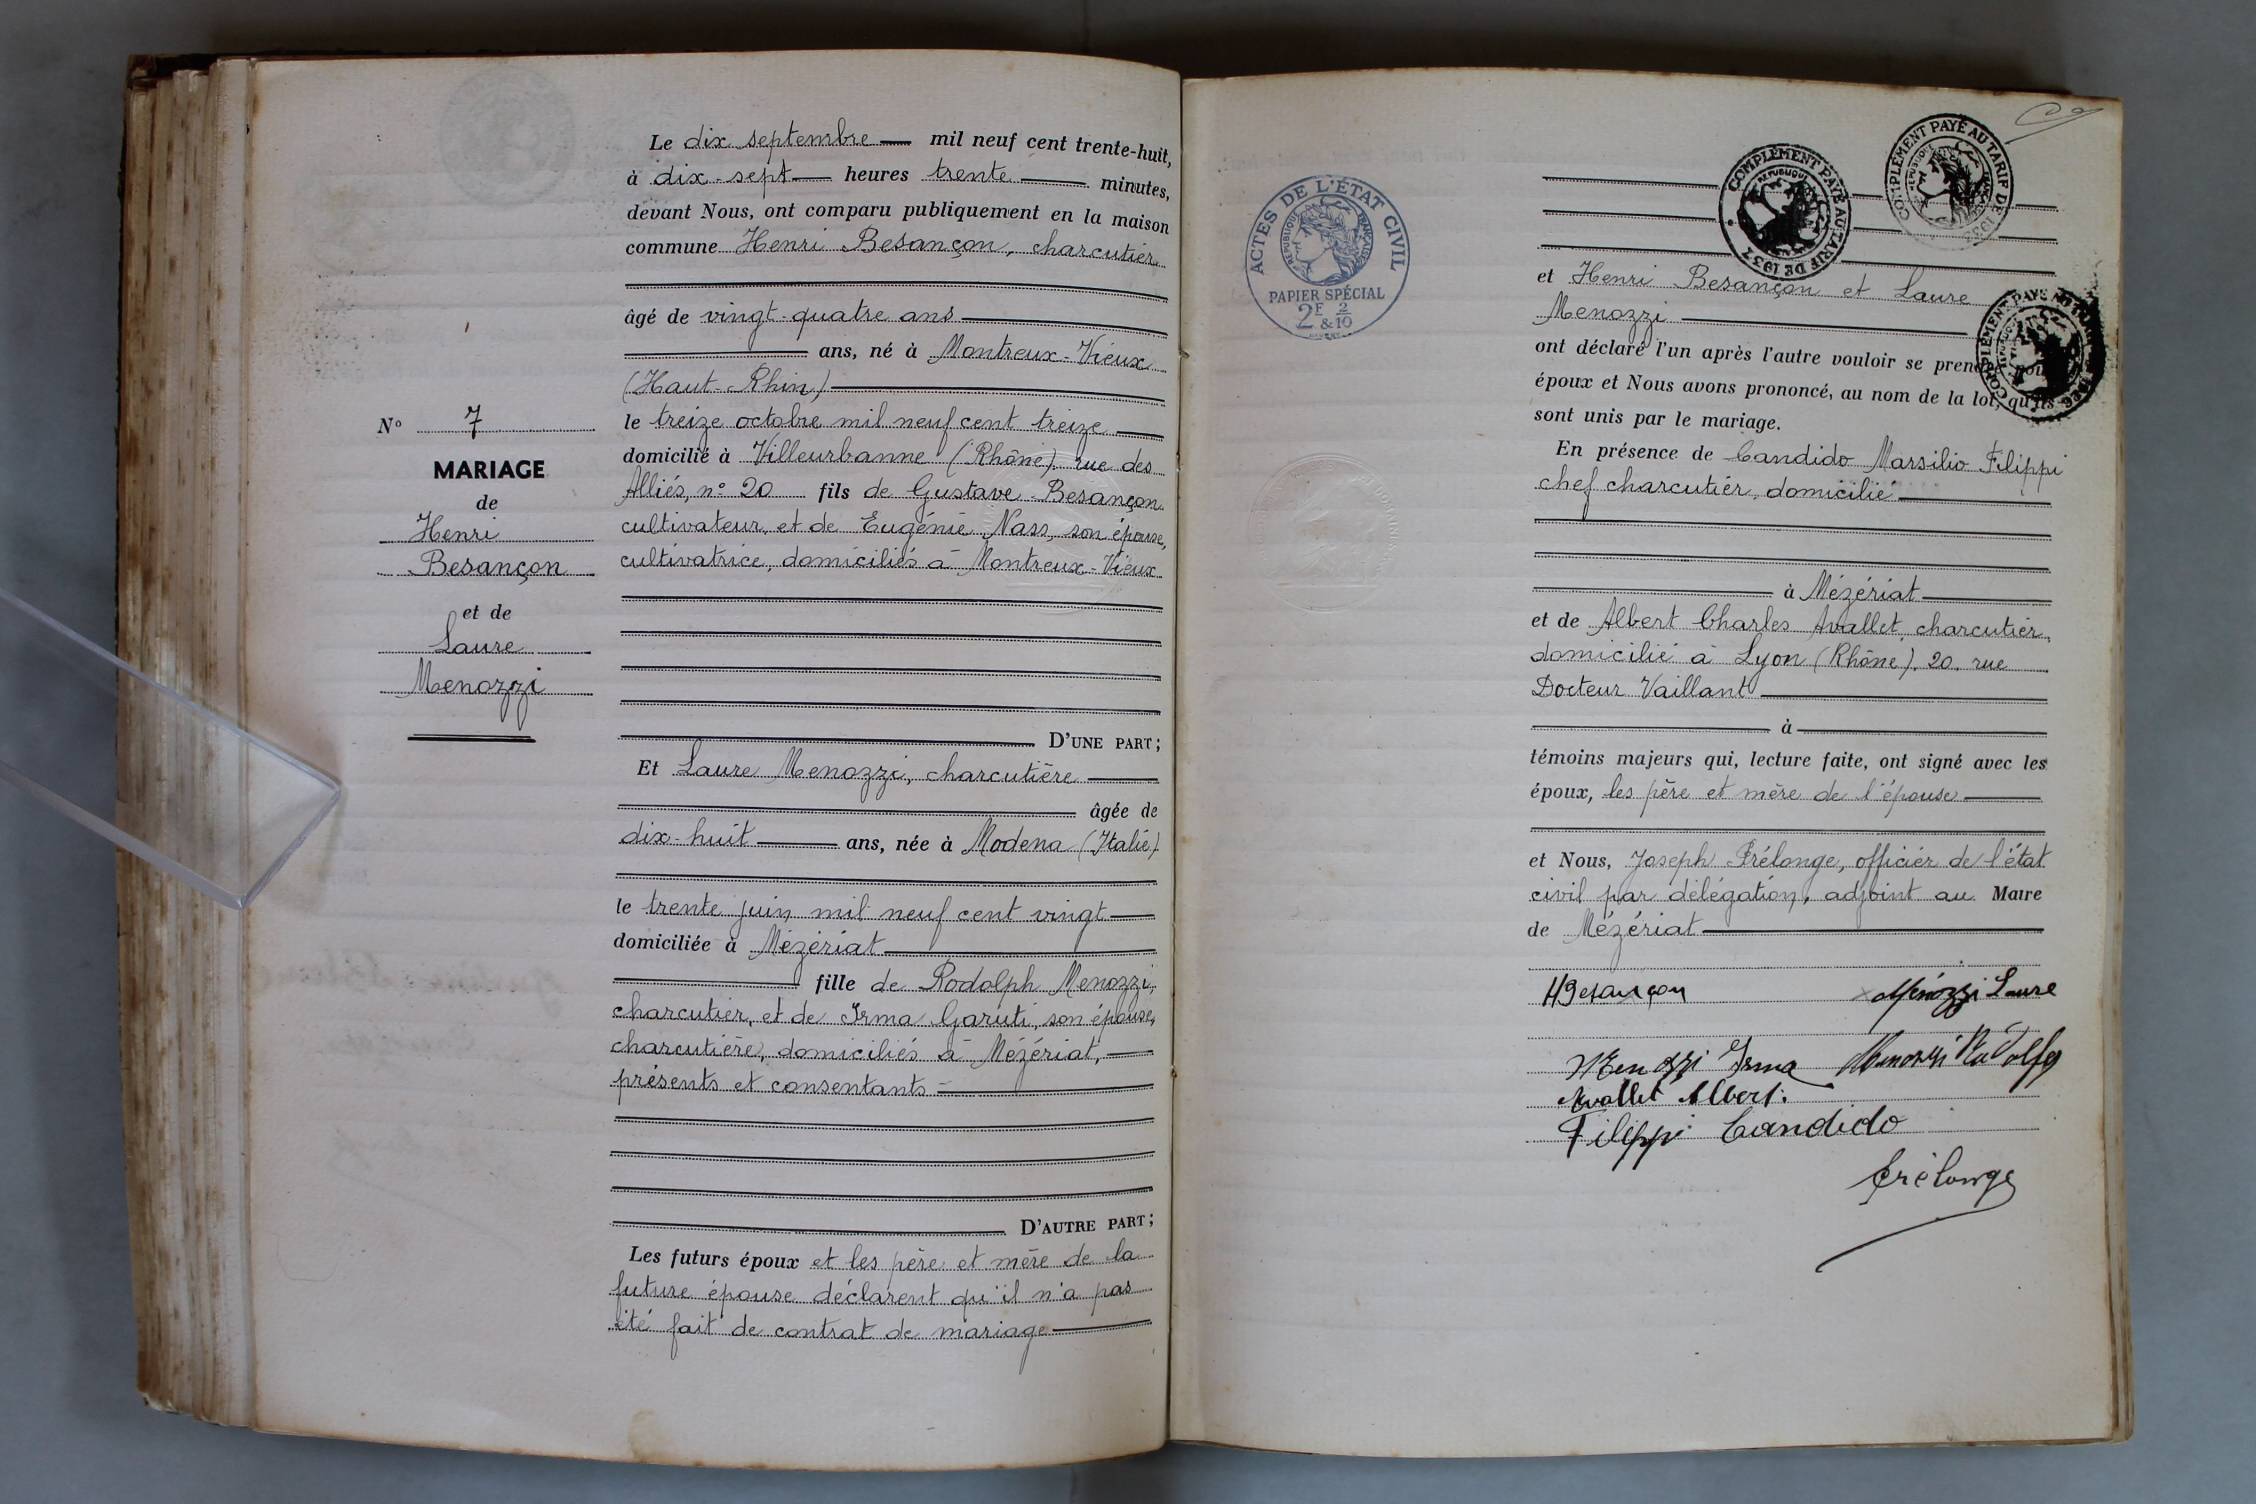 Le dix septembre mil neuf cent trente-huit,
à dix-sept heures trente minutes,
devant Nous, ont comparu publiquement en la maison
commune Henri Besançon, charcutier
âgé de vingt-quatre ans
ans, né à Montreux-Vieux
(Haut-Rhin)
le treize octobre mil neuf cent treize
domicilié à Villeurbanne (Rhône). rue des
Alliés, n° 20 fils de Gustave Besançon
cultivateur, et de Eugénie Nass, son épouse,
cultivatrice, domiciliés à Montreux-Vieux
D'UNE PART;
Et Laure Menozzi, charcutière
âgée de
dix-huit ans, née à Modena (Italie)
le trente juin mil neuf cent vingt
domiciliée à Mézériat
fille de Rodolph Menozzi,
charcutier, et de Irma Garuti, son épouse,
charcutière, domiciliés à Mézériat,
présents et consentants
D'AUTRE PART;
Les futurs époux et les père et mère de la
future épouse déclarent qu'il n'a pas
été fait de contrat de mariage
N° 7
MARIAGE
de
Henri
Besançon
et de
Laure
Menozzi
ACTES DE L'ÉTAT CIVIL
RÉPUBLIQUE FRANÇAISE
PAPIER SPÉCIAL
2F & 2/10
COMPLÉMENT PAYÉ AU TARIF DE 1937
RÉPUBLIQUE
COMPLÉMENT PAYÉ AU TARIF DE 1937
RÉPUBLIQUE FRANÇAISE
COMPLÉMENT PAYÉ AU
et Henri Besançon et Laure
Menozzi
ont déclaré l'un après l'autre vouloir se prendre pour
époux et Nous avons prononcé, au nom de la loi, qu'ils
sont unis par le mariage.
En présence de Candido Marsilio Filippi
chef charcutier, domicilié
à Mézériat
et de Albert Charles Avallet, charcutier,
domicilié à Lyon (Rhône). 20. rue
Docteur Vaillant
à
témoins majeurs qui, lecture faite, ont signé avec les
époux, les père et mère de l'épouse
et Nous, Joseph Prélonge, officier de l'état
civil par délégation, adjoint au Maire
de Mézériat
HBesançon Menozzi Laure
Menozzi Irma Menozzi Rodolfo
Avallet Albert.
Filippi Candido
Prélonge